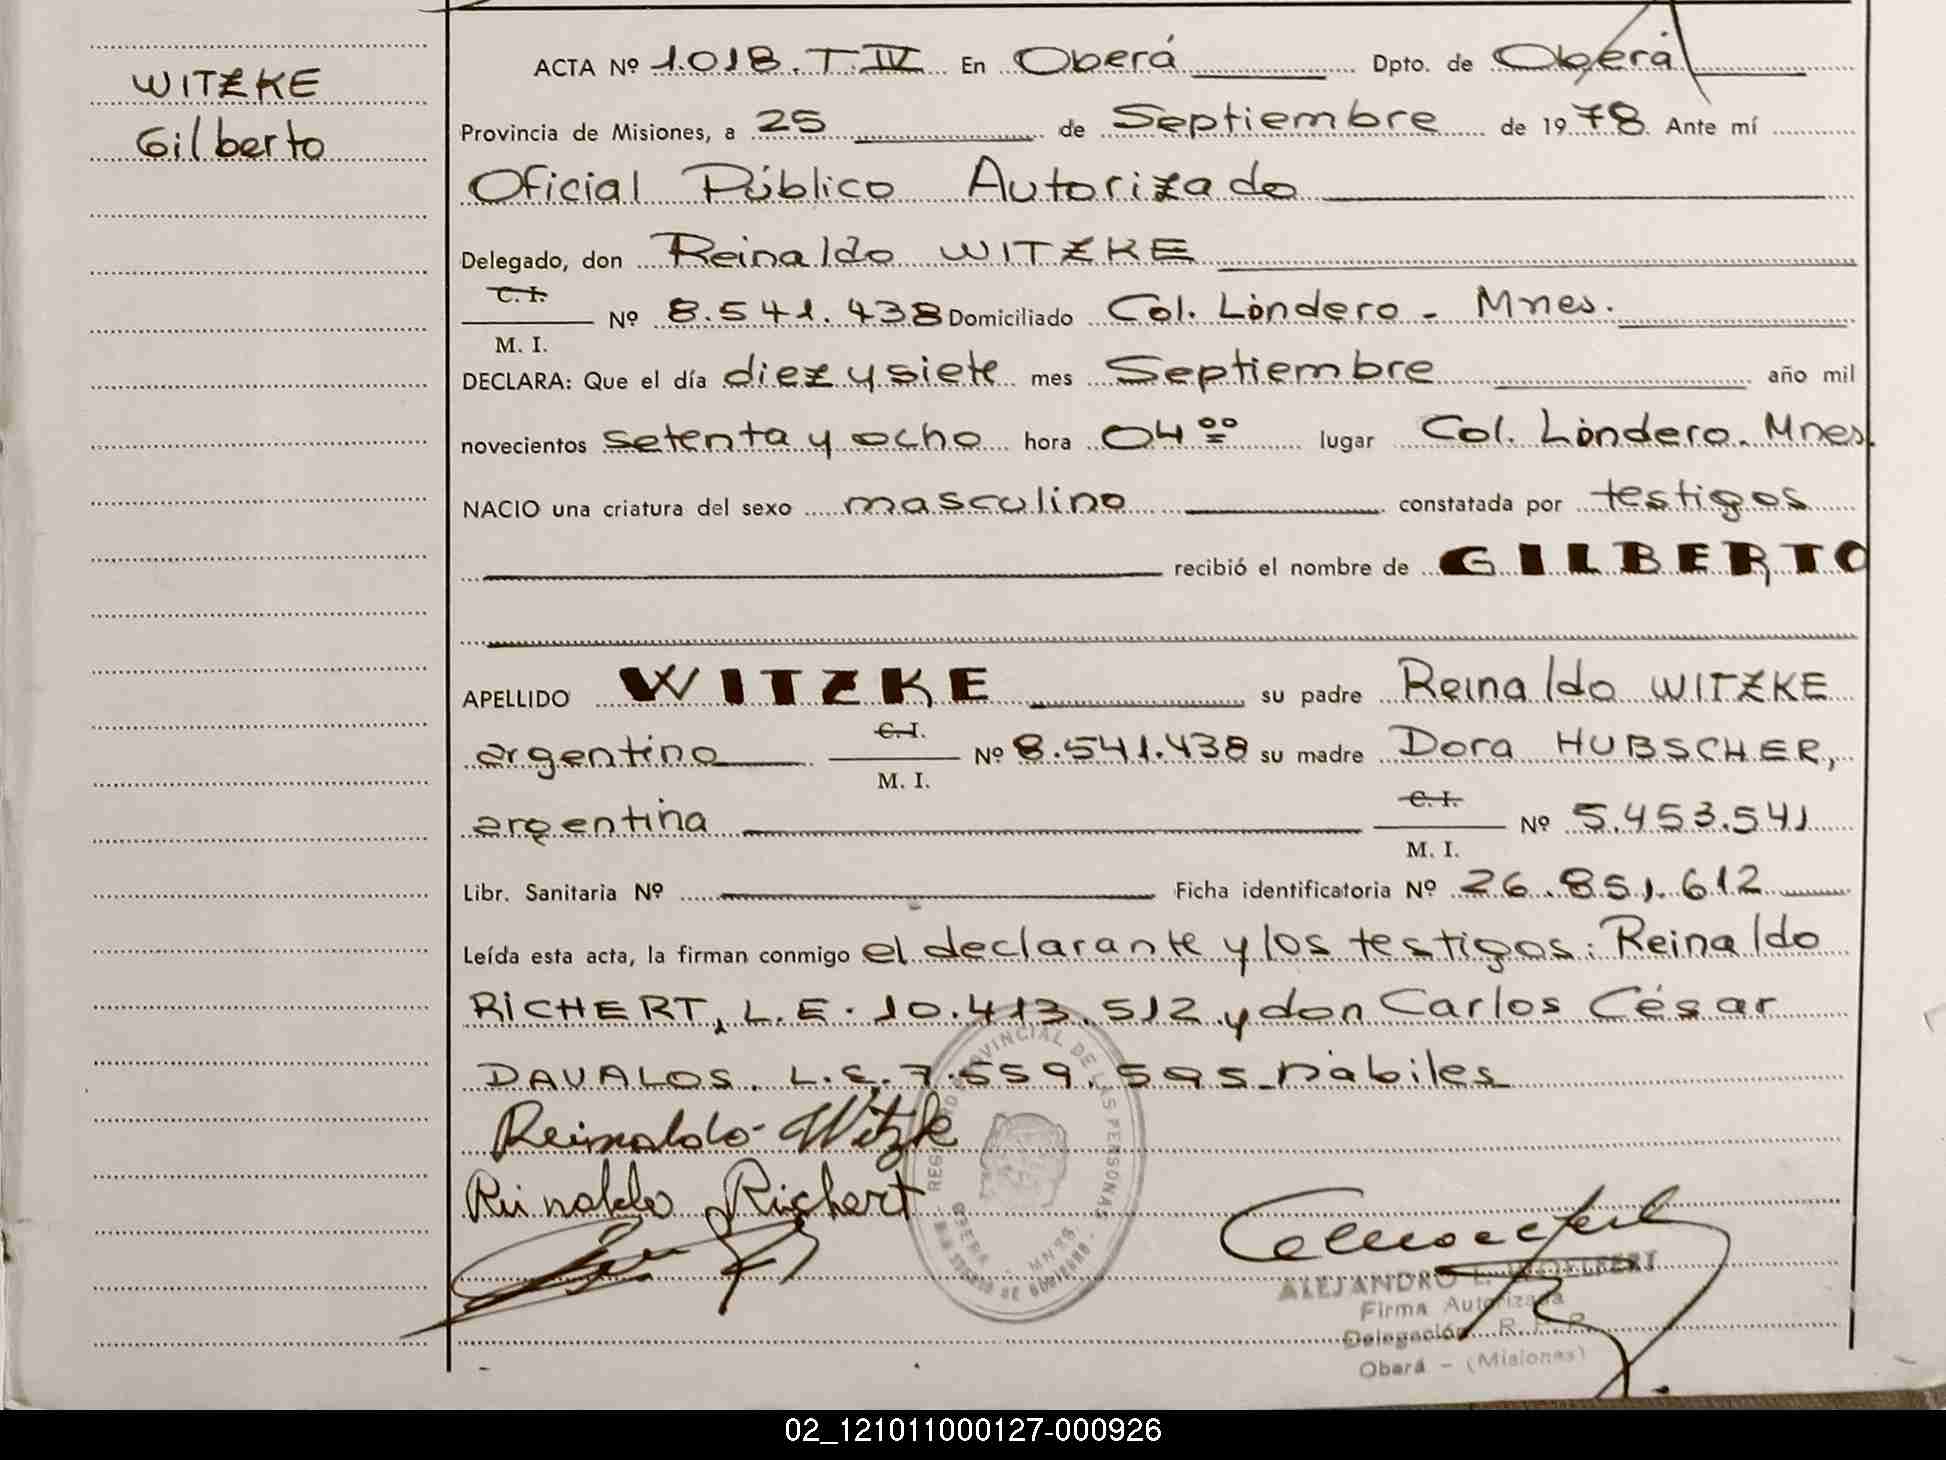 WITZKE
Gilberto
ACTA Nº 1.018. T. IV En Oberá Dpto. de Oberá
Provincia de Misiones, a 25 de Septiembre de 1978 Ante mí
Oficial Público Autorizado
Delegado, don Reinaldo WITZKE
C. I.
Nº 8.541.438 Domiciliado Col. Londero - Mnes.
M. I.
DECLARA: Que el día diez y siete mes Septiembre año mil
novecientos setenta y ocho hora 04 00 lugar Col. Londero. Mnes.
NACIO una criatura del sexo masculino constatada por testigos
recibió el nombre de GILBERTO
APELLIDO WITZKE su padre Reinaldo WITZKE
argentino C. I. Nº 8.541.438 su madre Dora HUBSCHER,
M. I.
argentina C. I. Nº 5.453.541
M. I.
Libr. Sanitaria Nº Ficha identificatoria Nº 26.851.612
Leída esta acta, la firman conmigo el declarante y los testigos: Reinaldo
RICHERT, L.E. 10.413.512 y don Carlos César
DAVALOS. L.E. 7.559.595 hábiles
Reinaldo Witzke
Reinaldo Richert
REGISTRO PROVINCIAL DE LAS PERSONAS
OBERA - MNES.
DE GOBIERNO
ALEJANDRO L.
Firma Autorizada
Delegación R. P. P.
Oberá - (Misiones)
02_121011000127-000926